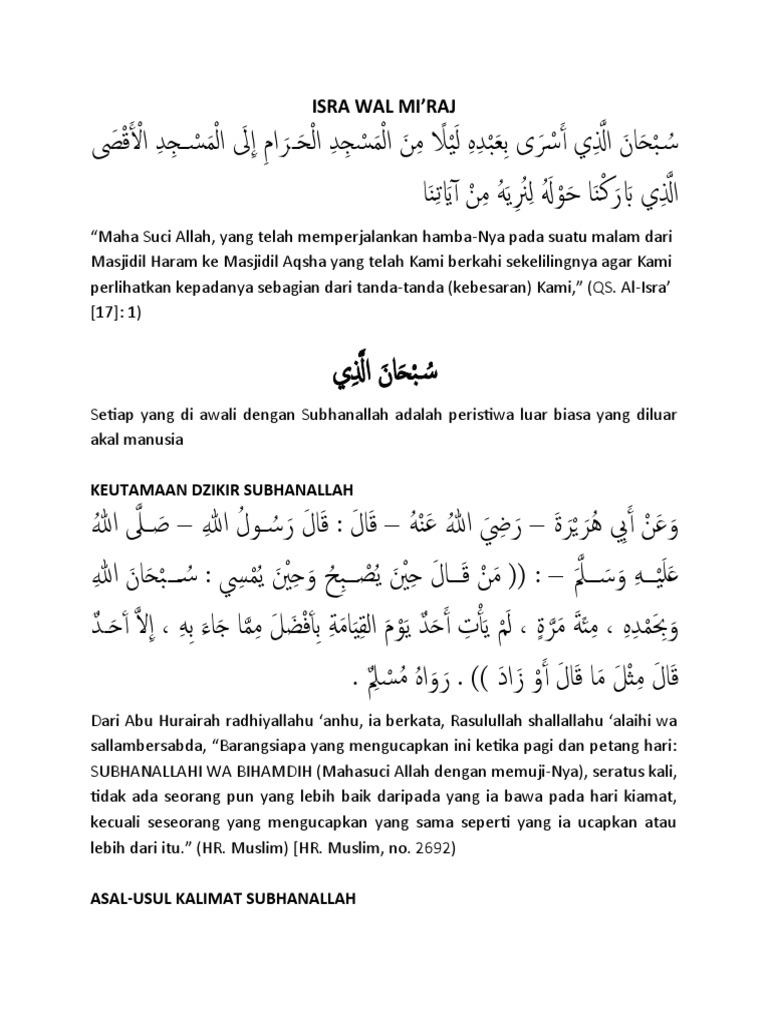 ISRA WAL MI’RAJ
سُـبْحَانَ الَّذِي أَسْرَى بِعَبْدِهِ لَيْلًا مِنَ الْمَسْجِدِ الْحَـرَامِ إِلَى الْمَسْـجِدِ الْأَقْصَى
الَّذِي بَارَكْنَا حَوْلَهُ لِنُرِيَهُ مِنْ آيَاتِنَا
“Maha Suci Allah, yang telah memperjalankan hamba-Nya pada suatu malam dari
Masjidil Haram ke Masjidil Aqsha yang telah Kami berkahi sekelilingnya agar Kami
perlihatkan kepadanya sebagian dari tanda-tanda (kebesaran) Kami,” (QS. Al-Isra’
[17]: 1)
سُـبْحَانَ الَّذِي
Setiap yang di awali dengan Subhanallah adalah peristiwa luar biasa yang diluar
akal manusia
KEUTAMAAN DZIKIR SUBHANALLAH
وَعَنْ أَبِي هُرَيْرَةَ – رَضِيَ اللهُ عَنْهُ – قَالَ : قَالَ رَسُـولُ اللهِ – صَـلَّى اللهُ
عَلَيْـهِ وَسَـلَّمَ – : (( مَنْ قَـالَ حِيْنَ يُصْـبِحُ وَحِيْنَ يُمْسِي : سُـبْحَانَ اللهِ
وَبِحَمْدِهِ ، مِئَةَ مَرَّةٍ ، لَمْ يَأْتِ أَحَدٌ يَوْمَ القِيَامَةِ بِأَفْضَلَ مِمَّا جَاءَ بِهِ ، إِلاَّ أَحَـدٌ
قَالَ مِثْلَ مَا قَالَ أَوْ زَادَ )) . رَوَاهُ مُسْلِمٌ .
Dari Abu Hurairah radhiyallahu ‘anhu, ia berkata, Rasulullah shallallahu ‘alaihi wa
sallambersabda, “Barangsiapa yang mengucapkan ini ketika pagi dan petang hari:
SUBHANALLAHI WA BIHAMDIH (Mahasuci Allah dengan memuji-Nya), seratus kali,
tidak ada seorang pun yang lebih baik daripada yang ia bawa pada hari kiamat,
kecuali seseorang yang mengucapkan yang sama seperti yang ia ucapkan atau
lebih dari itu.” (HR. Muslim) [HR. Muslim, no. 2692)
ASAL-USUL KALIMAT SUBHANALLAH